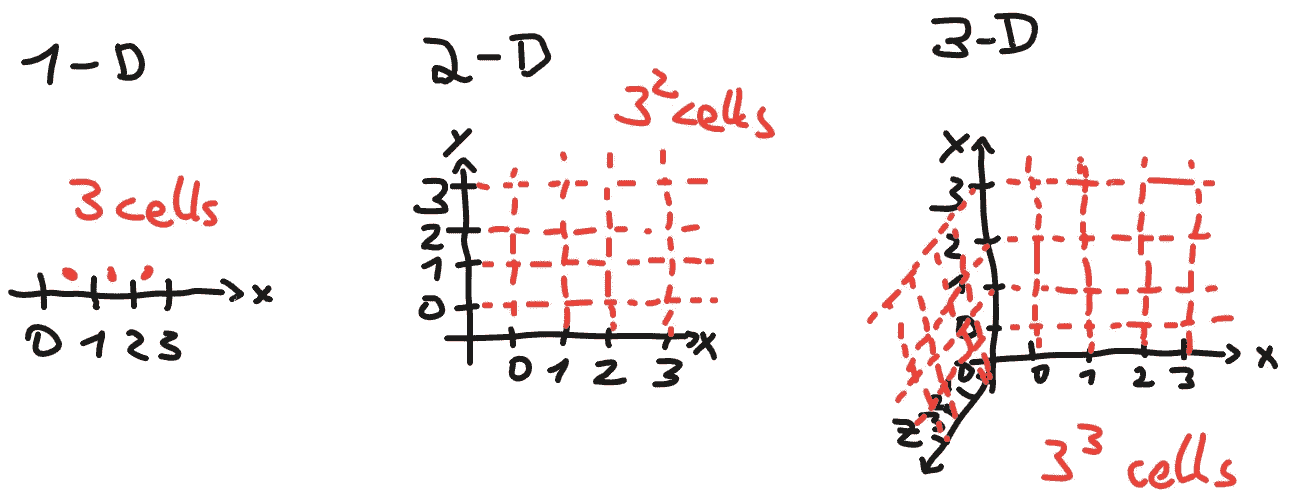 1-D
3 cells
0 1 2 3
x
2-D
3² cells
y
3
2
1
0
x
0 1 2 3
3-D
x
3
2
0
0 1 2 3
x
z
3³ cells